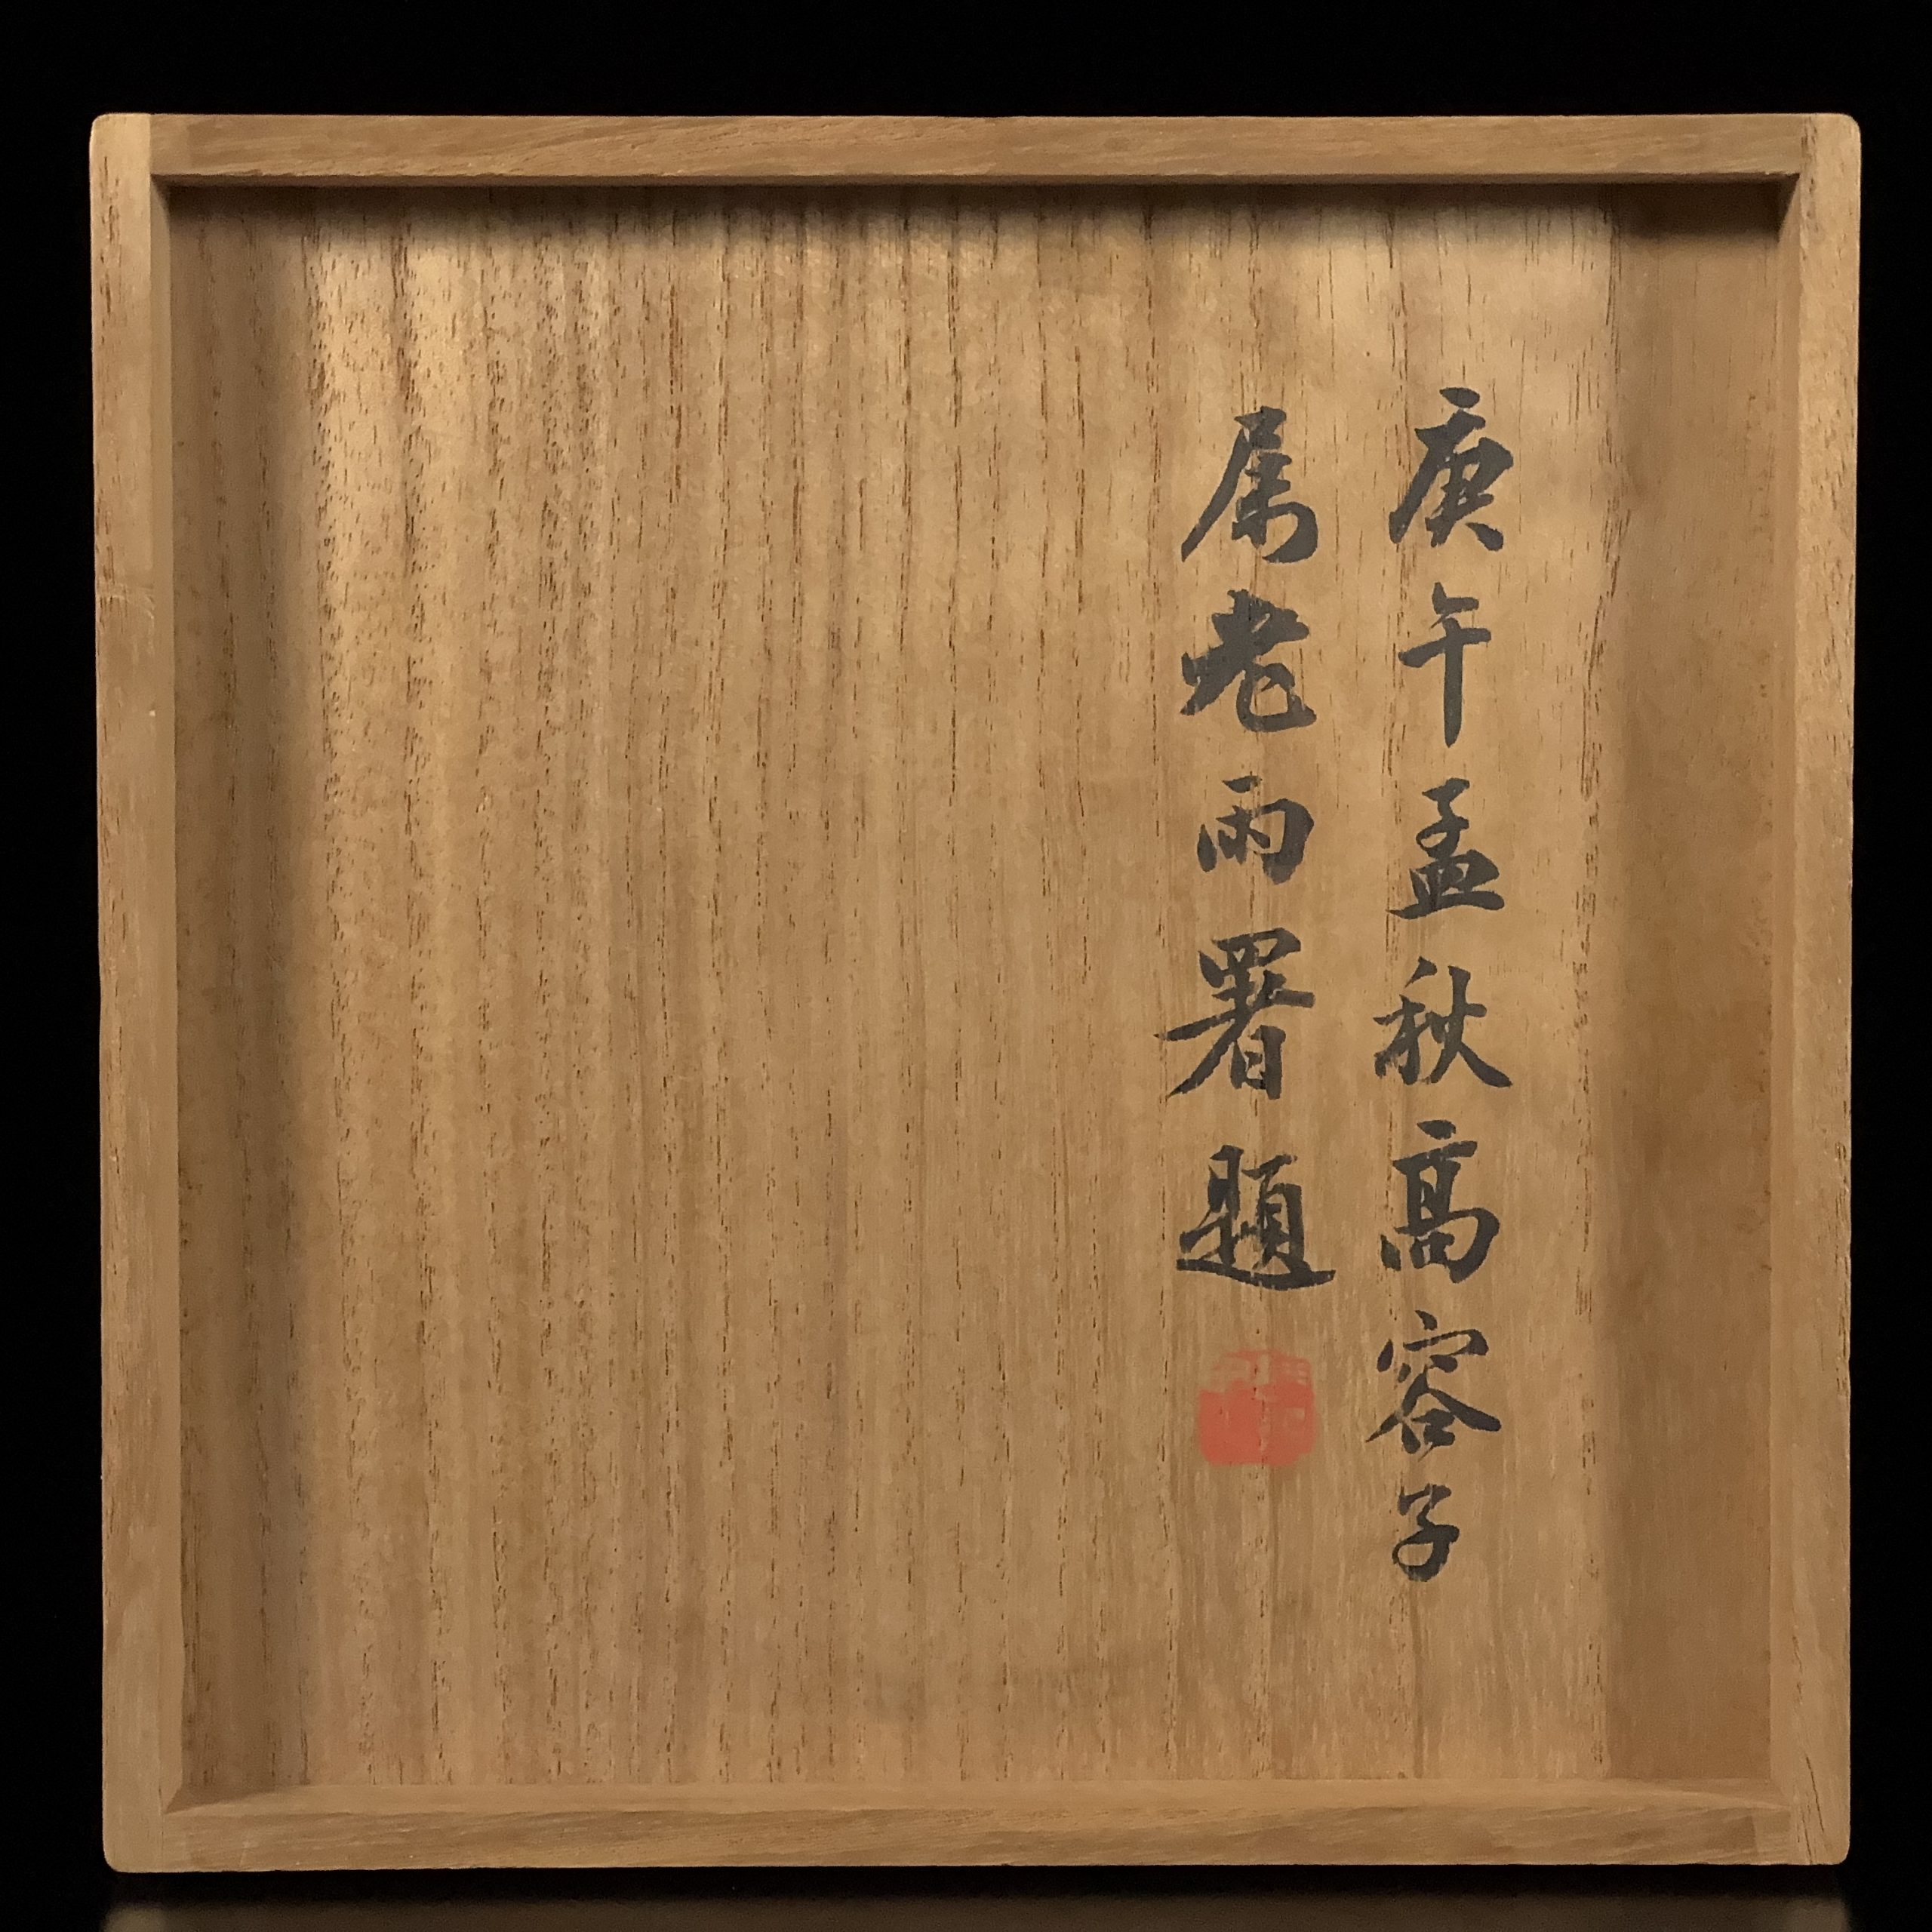 庚午孟秋高容子
属老雨署題